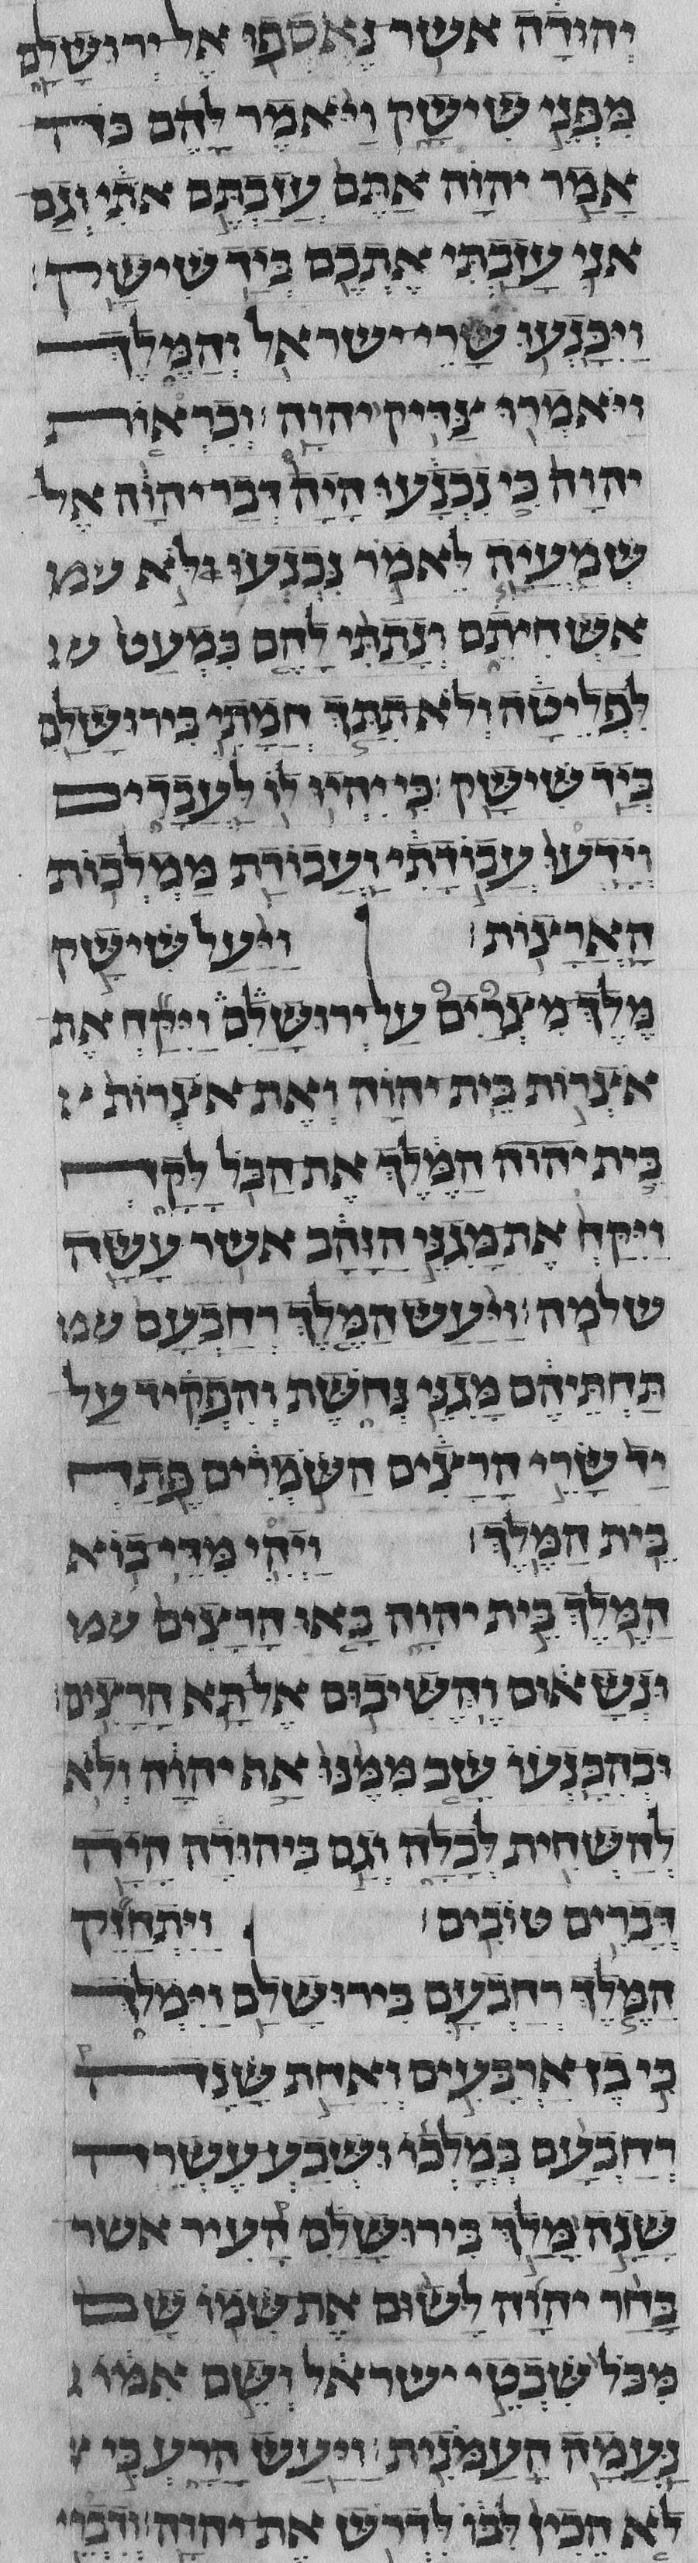 יהודה אשר נאספו אל ירושלם
מפני שישק ויאמר להם כה
אמר יהוה אתם עזבתם אתי וגם
אני עזבתי אתכם ביד שישק׃
ויכנעו שרי ישראל והמלך
ויאמרו צדיק יהוה׃ ובראות
יהוה כי נכנעו היה דבר יהוה אל
שמעיה לאמר נכנעו לא
אשחיתם ונתתי להם כמעט
לפליטה ולא תתך חמתי בירושלם
ביד שישק׃ כי יהיו לו לעבדים
וידעו עבודתי ועבודת ממלכות
הארצות׃ ויעל שישק
מלך מצרים על ירושלם ויקח את
אצרות בית יהוה ואת אצרות
בית יהוה המלך את הכל לקח
ויקח את מגני הזהב אשר עשה
שלמה׃ ויעש המלך רחבעם
תחתיהם מגני נחשת והפקיד על
יד שרי הרצים השמרים פתח
בית המלך׃ ויהי מדי בוא
המלך בית יהוה באו הרצים
ונשאום והשיבום אל תא הרצים׃
ובהכנעו שב ממנו אף יהוה ולא
להשחית לכלה וגם ביהודה היה
דברים טובים׃ ויתחזק
המלך רחבעם בירושלם וימלך
כי בן ארבעים ואחת שנה
רחבעם במלכו ושבע עשרה
שנה מלך בירושלם העיר אשר
בחר יהוה לשום את שמו שם
מכל שבטי ישראל ושם אמו
נעמה העמנית׃ ויעש הרע כי
לא הכין לבו לדרש את יהוה׃ ודברי